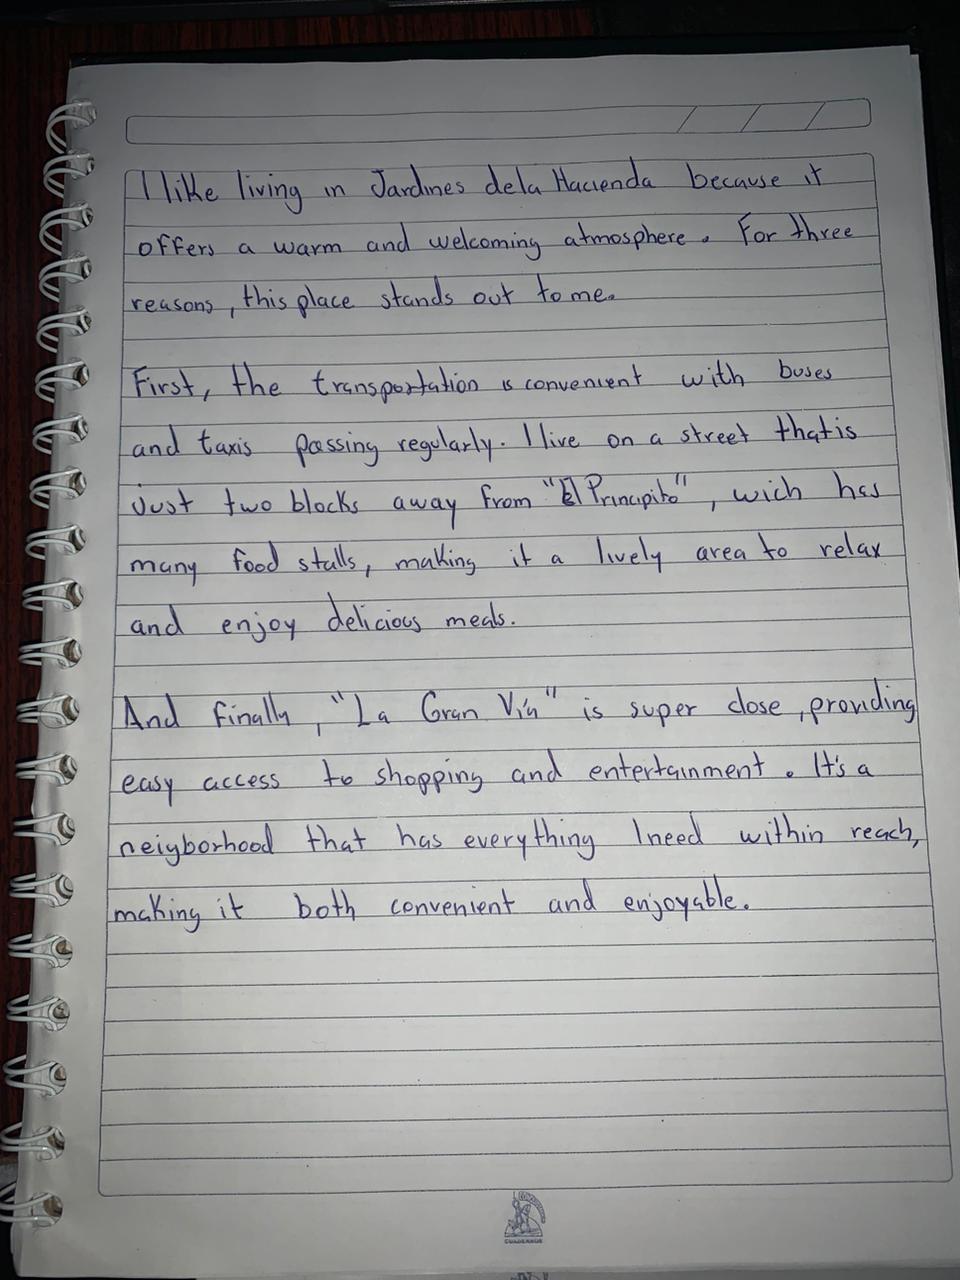 I like living in Jardines dela Hacienda because it
offers a warm and welcoming atmosphere. For three
reasons, this place stands out to me.
First, the transportation is convenient with buses
and taxis passing regularly. I live on a street that is
just two blocks away from "El Principito", wich has
many food stalls, making it a lively area to relax
and enjoy delicious meals.
And finally, "La Gran Vía" is super close, providing
easy access to shopping and entertainment. It's a
neigborhood that has everything I need within reach,
making it both convenient and enjoyable.